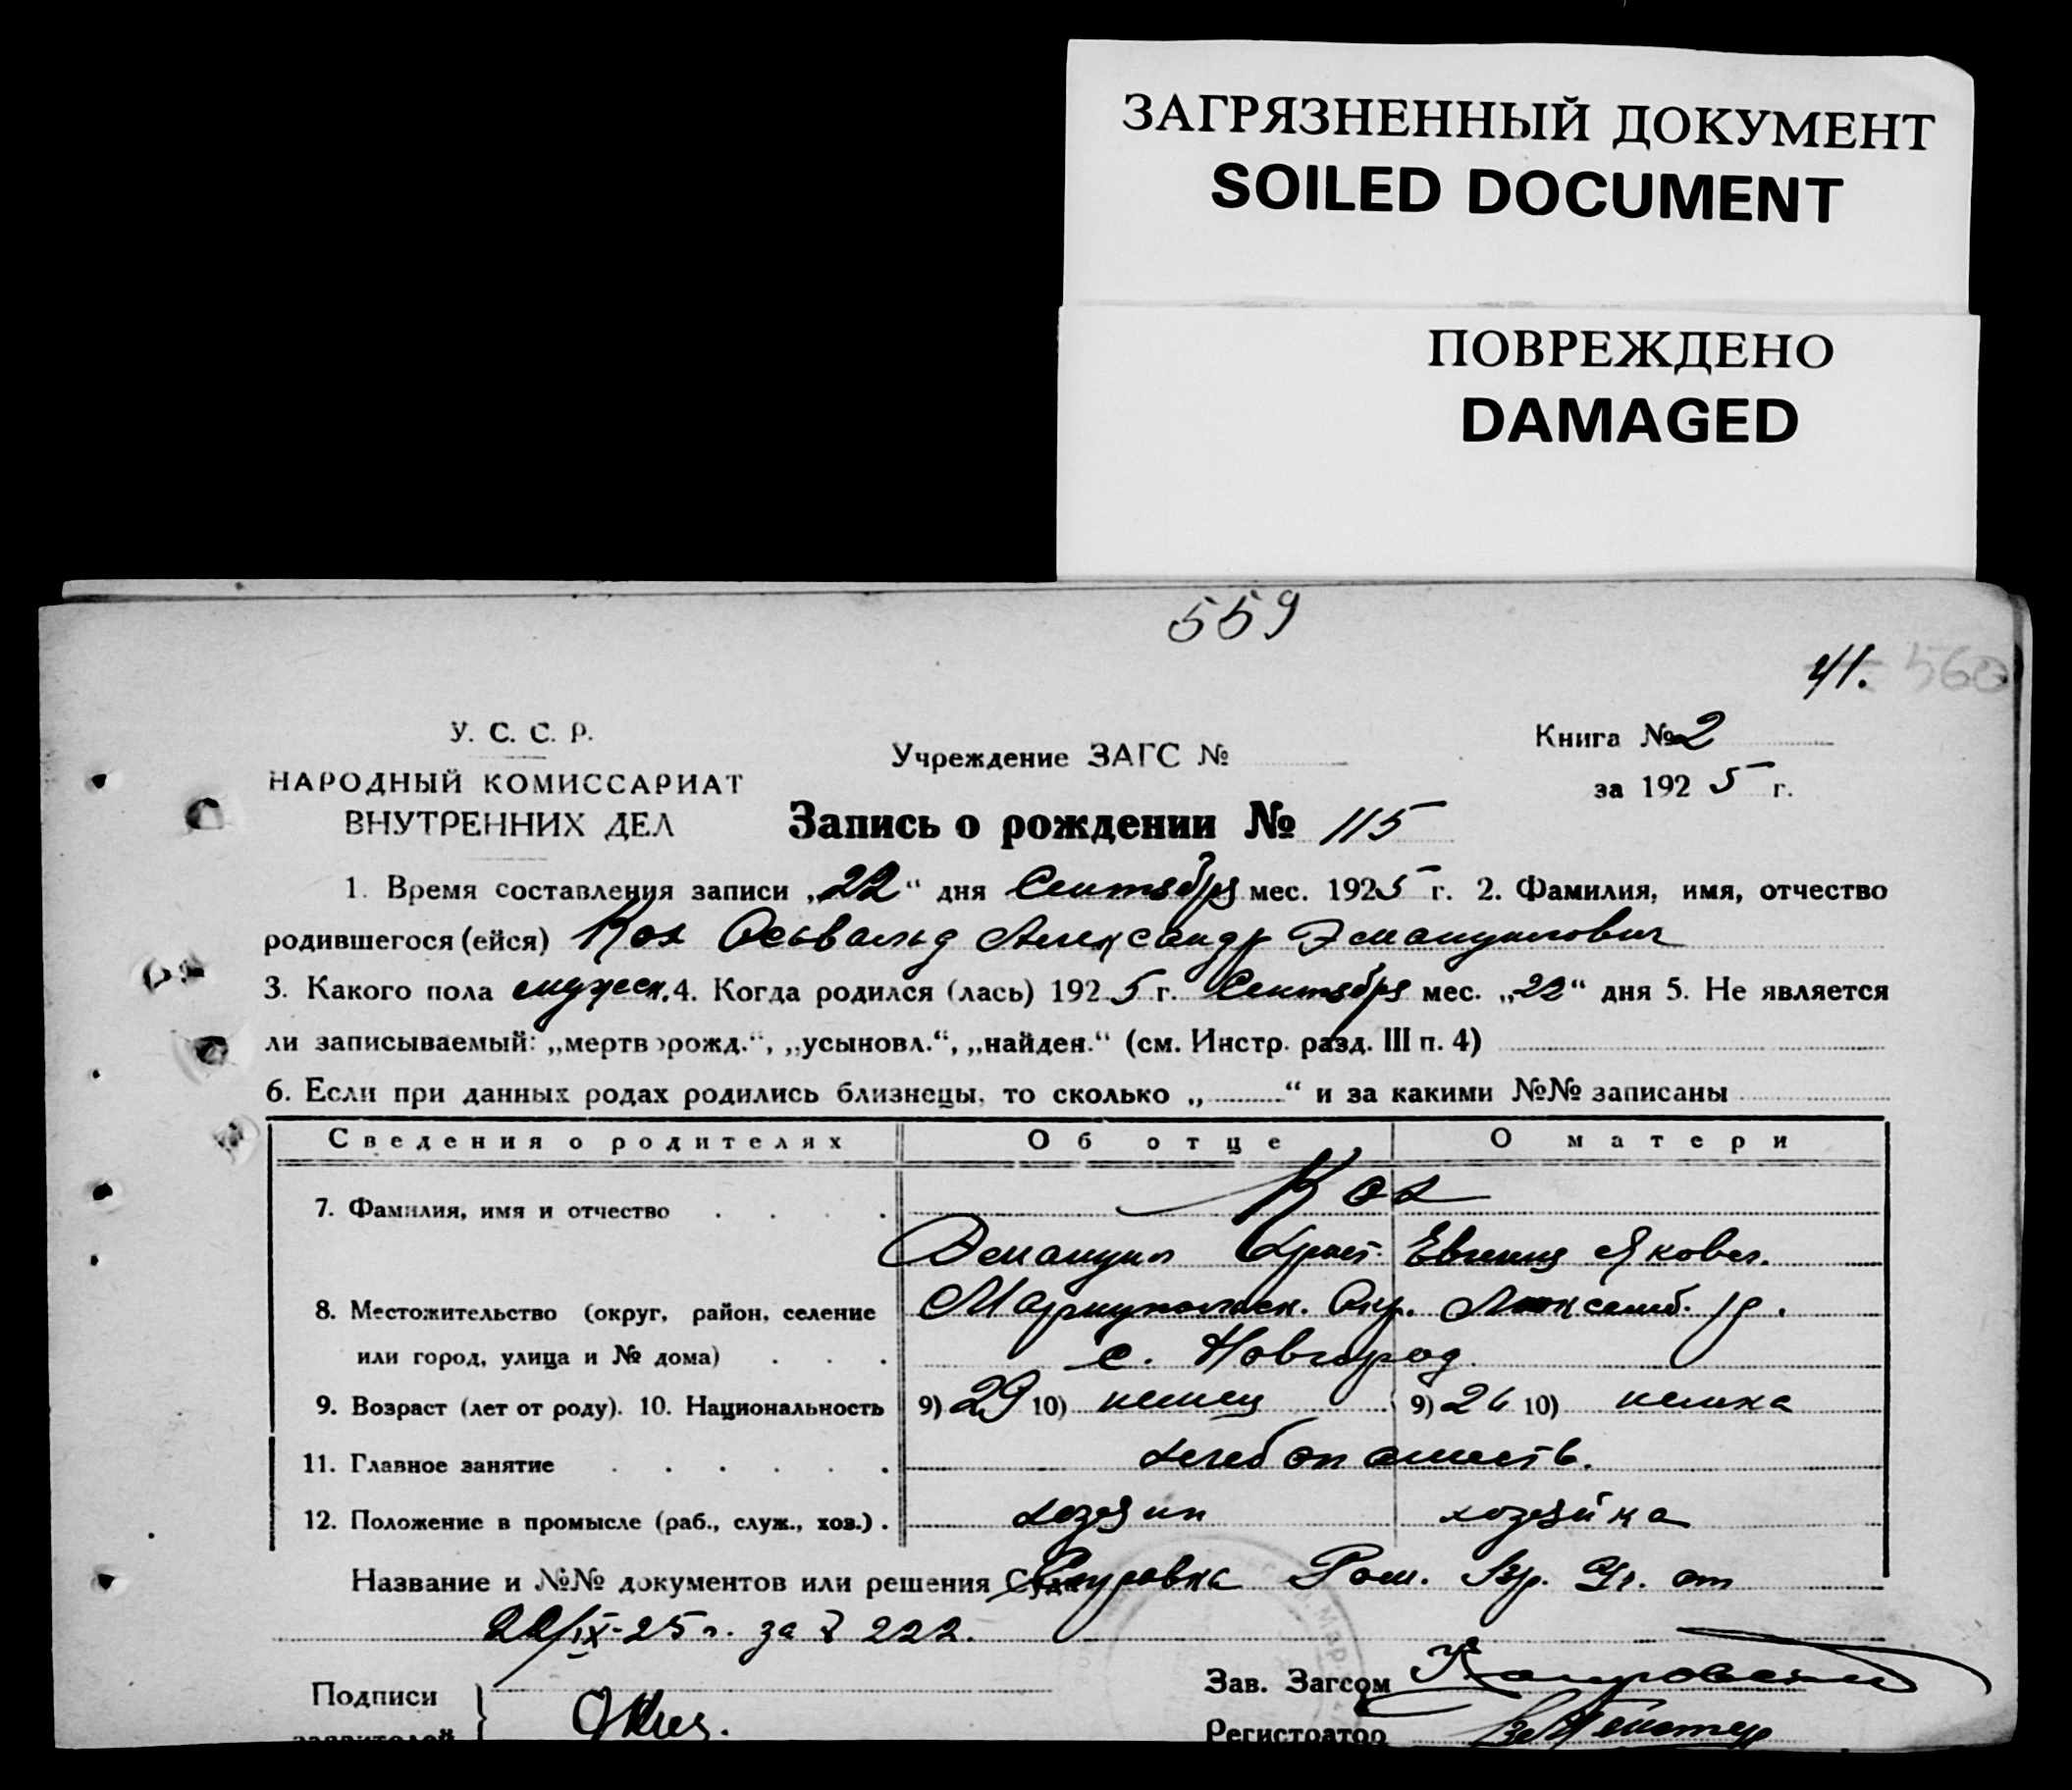 ЗАГРЯЗНЕННЫЙ ДОКУМЕНТ
SOILED DOCUMENT
ПОВРЕЖДЕНО
DAMAGED
559
41. 560
У. С. С. Р.
НАРОДНЫЙ КОМИССАРИАТ
ВНУТРЕННИХ ДЕЛ
Учреждение ЗАГС №
Книга № 2
за 1925 г.
Запись о рождении № 115
1. Время составления записи „22“ дня Сентября мес. 1925 г. 2. Фамилия, имя, отчество
родившегося (ейся) Кох Освальд Александр Эмануилович
3. Какого пола мужеск. 4. Когда родился (лась) 1925 г. Сентября мес. „22“ дня 5. Не является
ли записываемый: „мертворожд.“, „усыновл.“, „найден.“ (см. Инстр. разд. III п. 4)
6. Если при данных родах родились близнецы, то сколько „ “ и за какими №№ записаны
Сведения о родителях Об отце О матери
7. Фамилия, имя и отчество Кох
Эмануил Христ. Евгения Яковл.
8. Местожительство (округ, район, селение Мариупольск. Окр. Люксемб. р.
или город, улица и № дома) с. Новгород
9. Возраст (лет от роду). 10. Национальность 9) 29 10) немец 9) 26 10) немка
11. Главное занятие хлебопашеств.
12. Положение в промысле (раб., служ., хоз.) хозяин хозяйка
Название и №№ документов или решения Суда Справка Вр. от
22/IX-25 г. за № 222.
Подписи
заявителей
Зав. Загсом
Регистратор